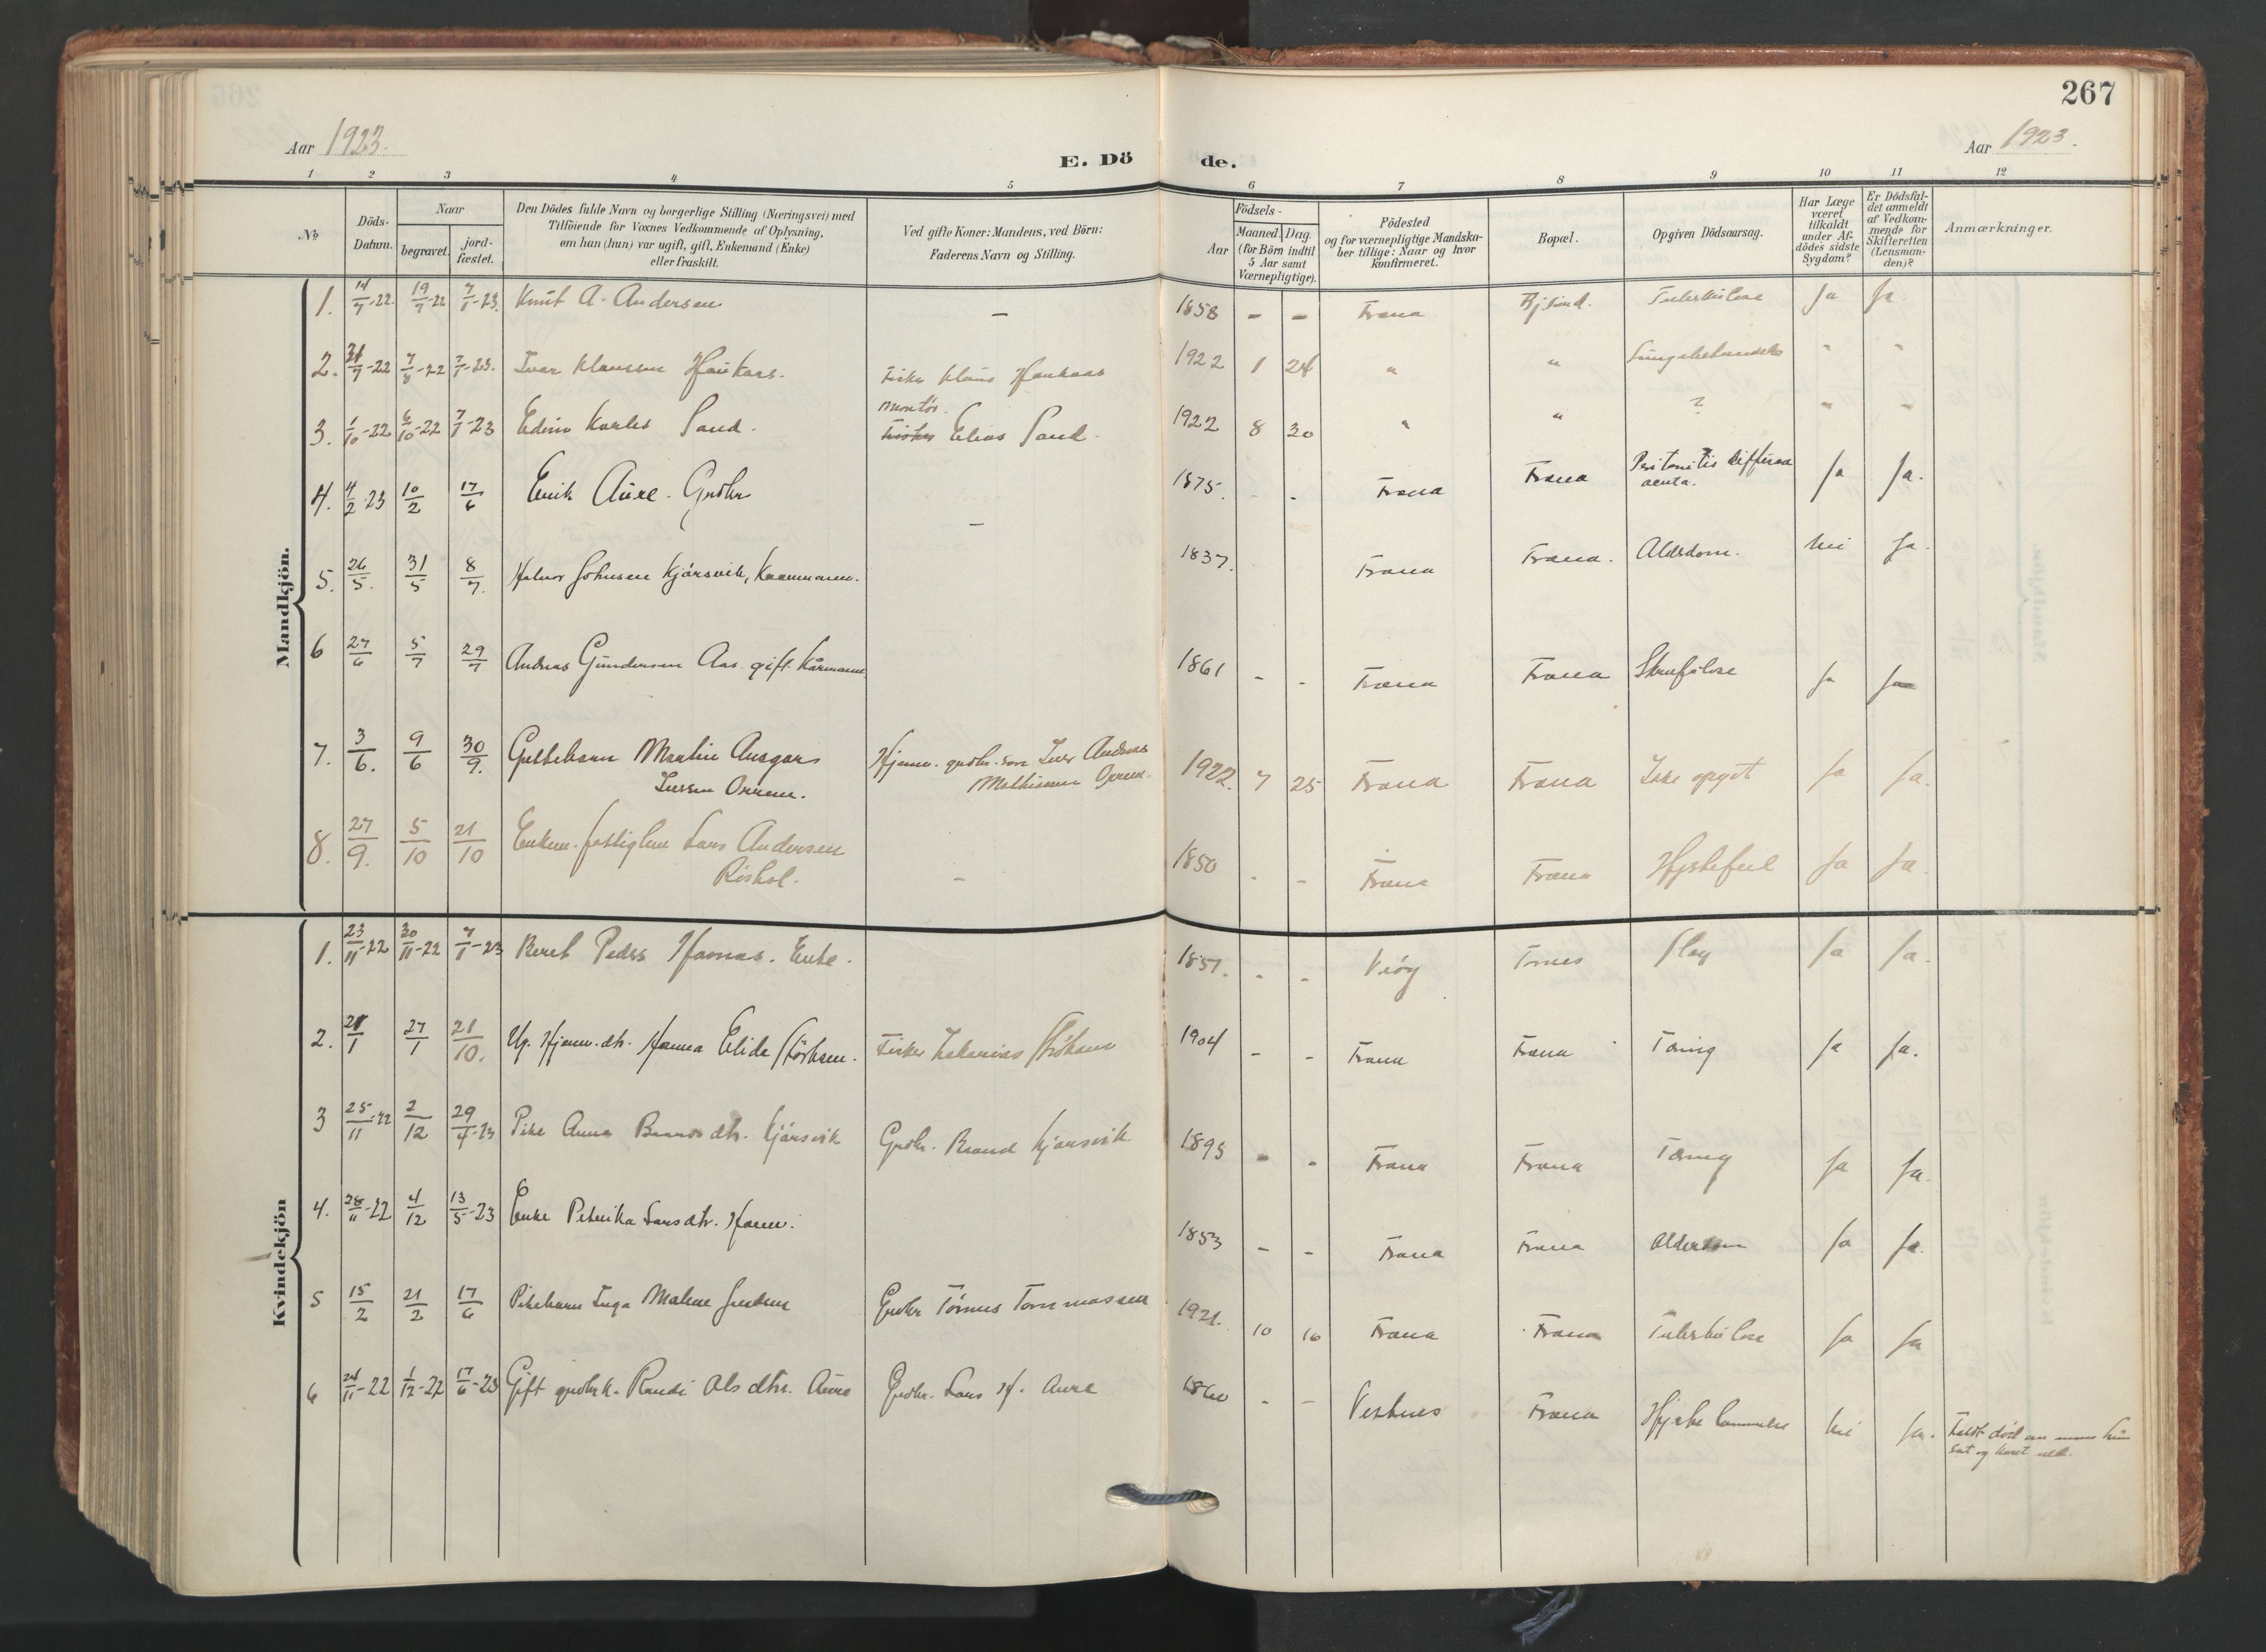 267
Aar 1923.
E. Dö de.
Aar 1923.
1 2 3 4 5 6 7 8 9 10 11 12
No
Döds-Datum.
Naar
begravet.
jord-fæstet.
Den Dödes fulde Navn og borgerlige Stilling (Næringsvei) med
Tilföiende for Voxnes Vedkommende af Oplysning,
om han (hun) var ugift, gift, Enkemand (Enke)
eller fraskilt.
Ved gifte Koner: Mandens, ved Börn:
Faderens Navn og Stilling.
Födsels-
Aar
Maaned. Dag.
(for Börn indtil
5 Aar samt
Værnepligtige).
Födested
og for værnepligtige Mandska-
ber tillige: Naar og hvor
konfirmeret.
Bopæl.
Opgiven Dödsaarsag.
Har Læge
været
tilkaldt
under Af-
dödes sidste
Sygdom?
Er Dödsfal-
det anmeldt
af Vedkom-
mende for
Skifteretten
(Lensman-
den)?
Anmærkninger.
Mandkjön.
1. 14/7-22. 19/7-22 7/1-23. Knut A. Andersen — 1858 - - Fræna Bjsund. Tuberkulose Ja Ja
2. 31/7-22 7/8-22 7/1-23. Ivar Klausen Haukaas. Fisker Klaus Haukaas 1922 1 24 " " " "
3. 1/10-22 6/10-22 7/1-23 Edvin Karles Sand. Montör. Fisker Elias Sand. 1922 8 30 " " ? " "
4. 4/2-23 10/2 17/6 Erik Aure. Grdbr — 1875. - - Fræna Fræna Peritonitis diffusa
acuta. Ja Ja.
5. 26/5. 31/5 8/7. Halvor Johnsen Kjörsvik, Kaarmann. 1837. Fræna Fræna. Alderdom. Nei Ja.
6 27/6 5/7 29/7 Andreas Gundersen Aas. gift. Kårmann 1861 - - Fræna Fræna Ja Ja
7. 3/6. 9/6 30/9. Guttebarn Martin Ansgar
Iversen Orrem. Hjemv. grdbr. søn Iver Andreas
Mathisen Orrem. 1922. 7 25 Fræna Fræna Ikke opgit Ja Ja.
8. 27/9. 5/10 21/10 Enkem. fattiglem Lars Andersen
Röshol. - 1850 - - Fræna Fræna Hjertefeil Ja Ja.
Kvindekjön
1. 23/11-22 30/11-22 7/1-23 Beret Peders Harnes. Enke. 1851. - - Veöy Tornes Slag Ja Ja.
2. 21/1 27/1 21/10. Ug. Hjemv. dtr. Hanna Elide Fisker Zakarias 1904 - - Fræna Fræna Tæring Ja Ja.
3 25/11-22 2/12 29/4-23 Pike Anna Brands dtr. Kjörsvik Grdbr. Brand Kjörsvik 1895 - - Fræna Fræna Tæring Ja Ja.
4. 28/11-22 4/12 13/5-23 Enke Petrikka Larsdtr. 1853 - - Fræna Fræna Alderdom Ja Ja.
5 15/2 21/2 17/6 Pikebarn Inga Malene Grdbr Tommassen 1921. 10 16 Fræna Fræna Tuberkulose Ja Ja
6 24/11-22 1/12-22 17/6-23 Gift grdbrk. Randi Olsdtr. Aure Grdbr. Lars H. Aure 1860 - - Vestnes Fræna Hjertelammelse Nei Ja. Faldt död om mens hun
sat og kardet uld.